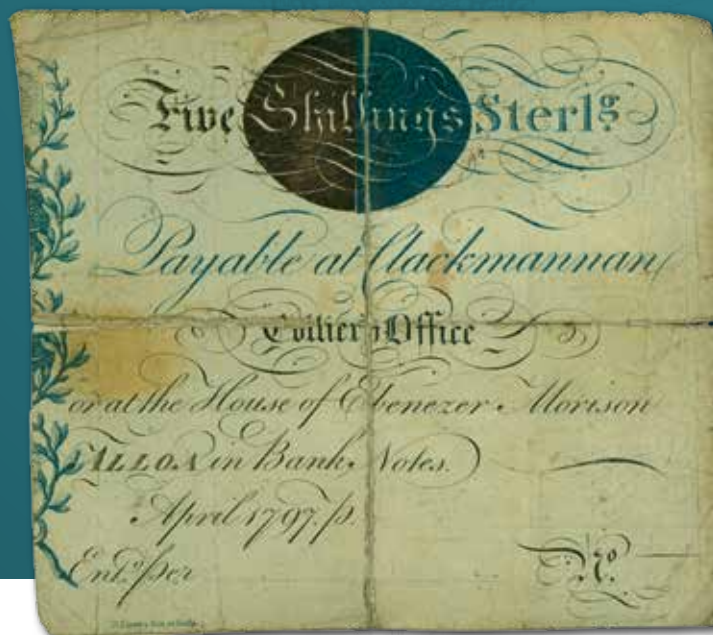 Five Shillings Sterlg.
Payable at Clackmannan
Collier's Office
or at the House of Ebenezer Morison
ALLOA in Bank Notes.
April 1797. p.
Entd. per
No.